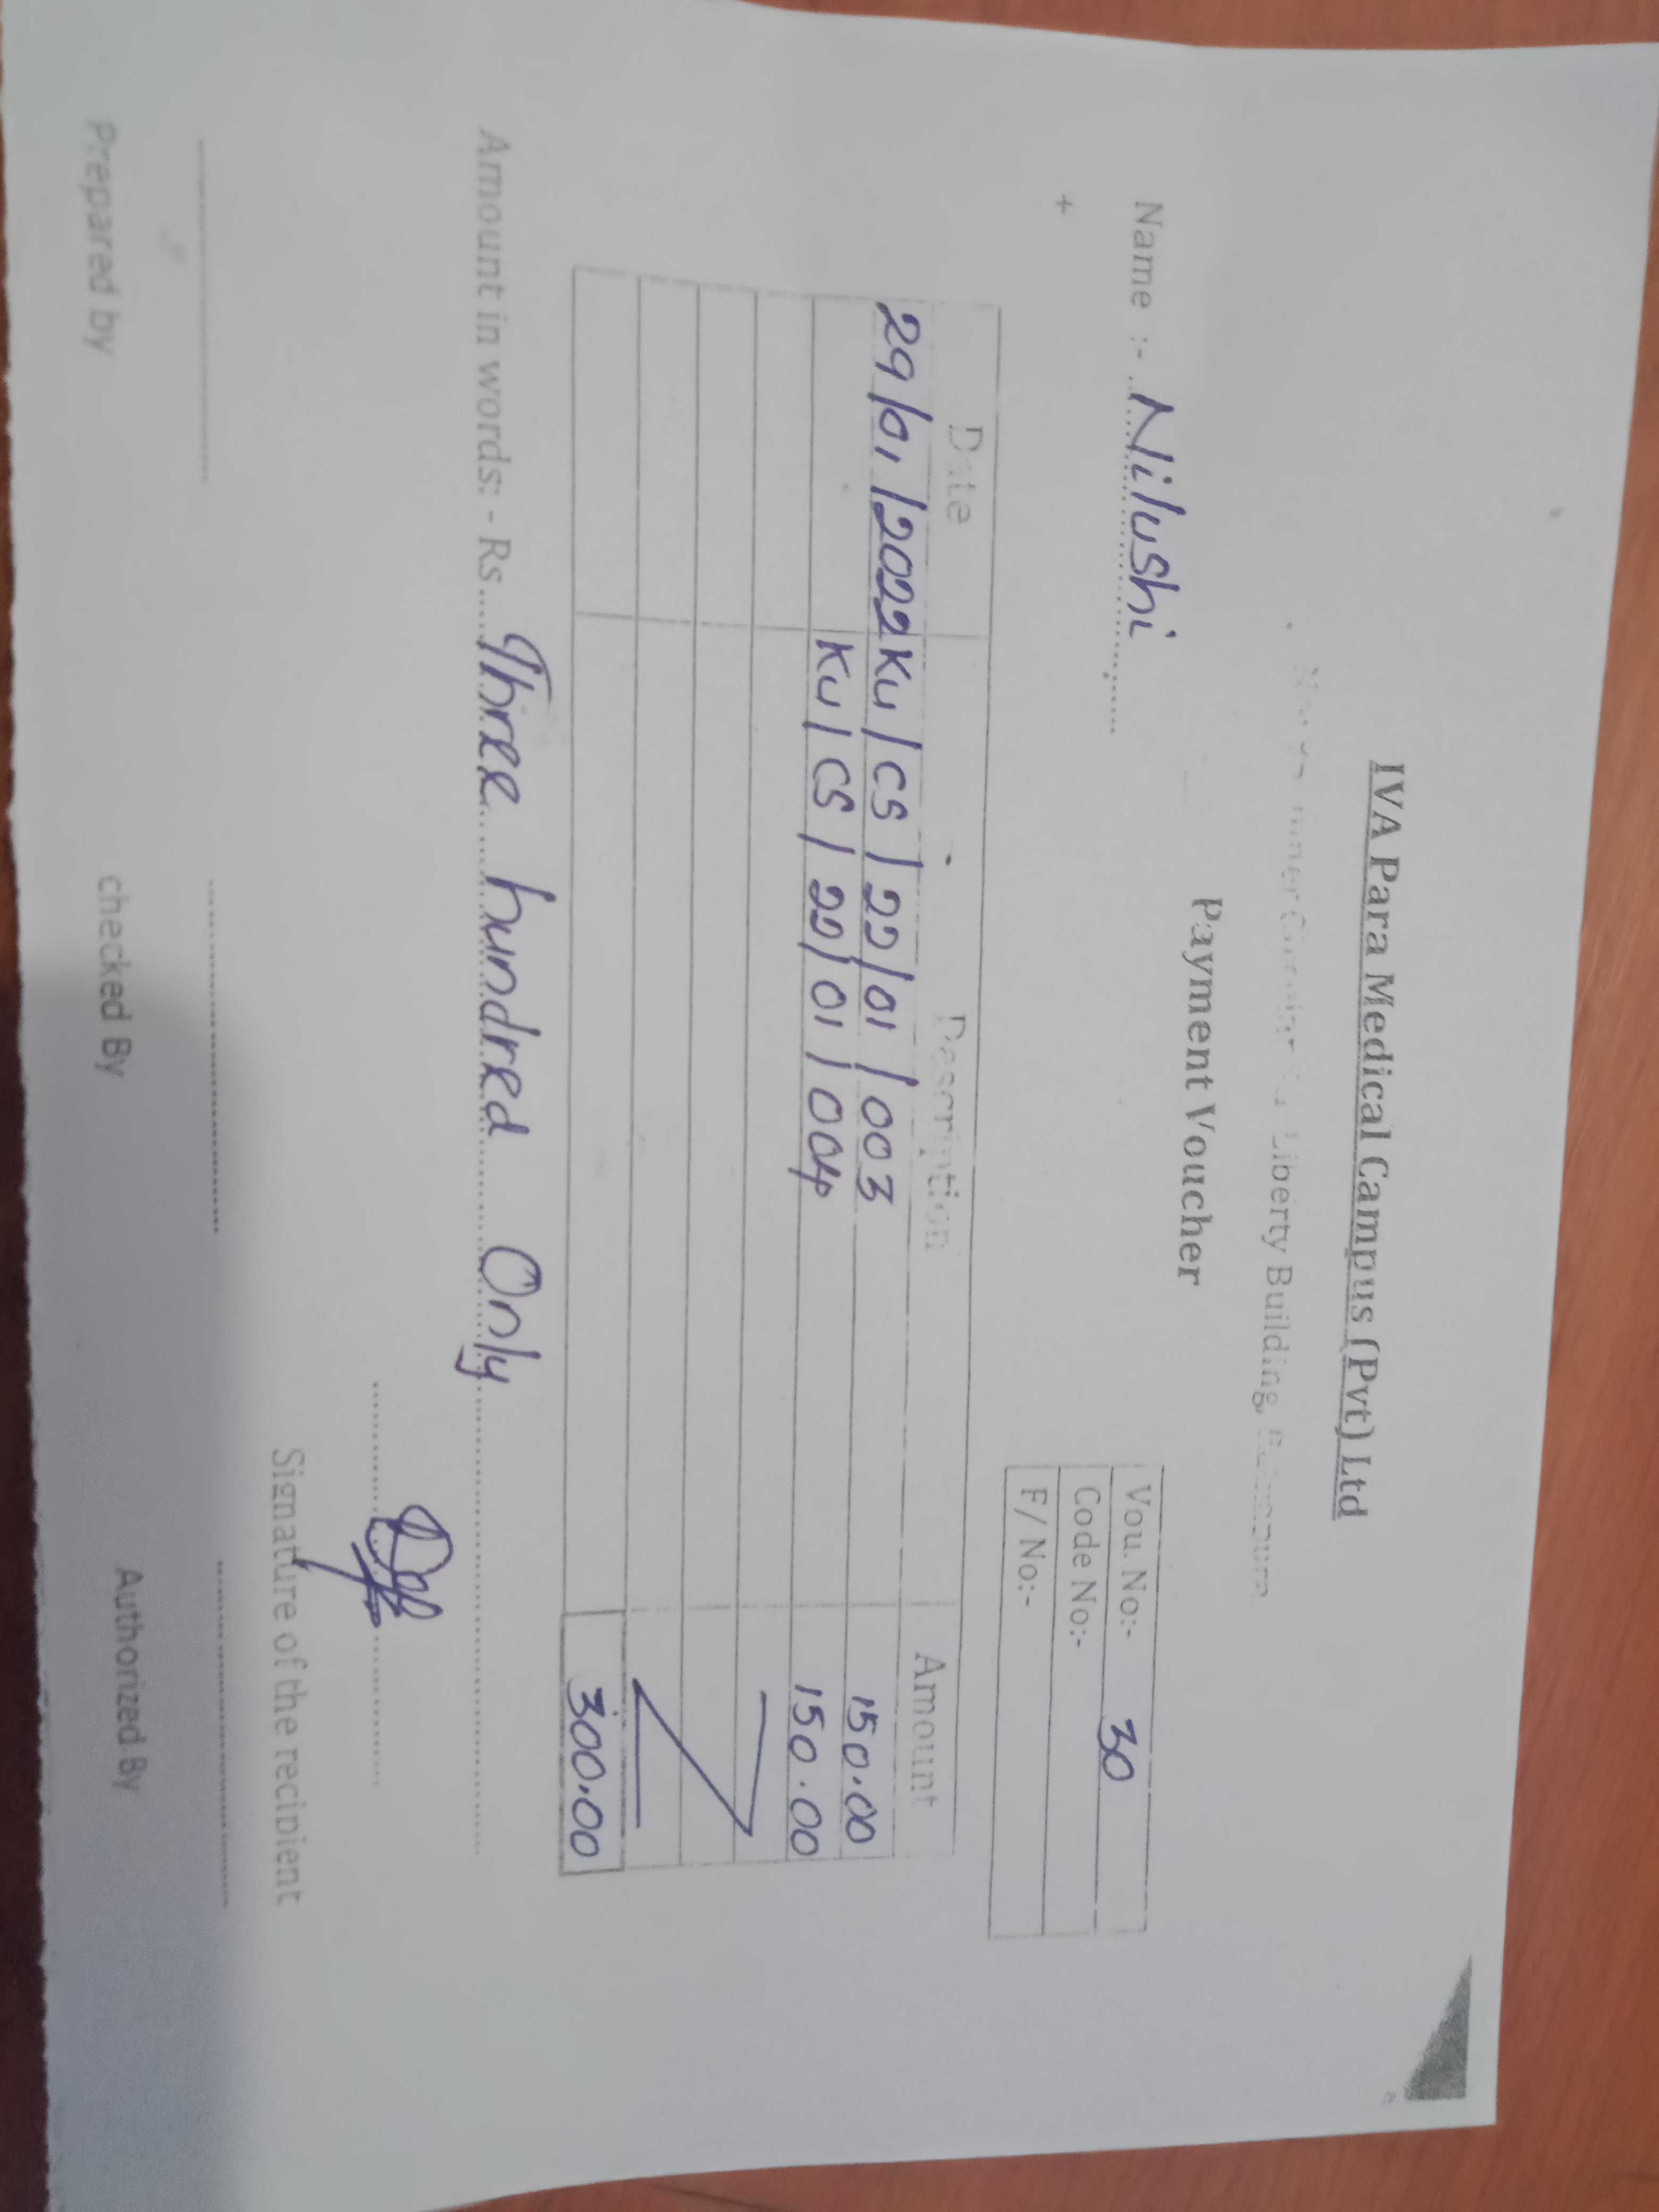 IVA Para Medical Campus (Pvt) Ltd
Liberty Building,
Payment Voucher
Vou. No:- 30
Name :- Nilushi
Code No:-
+
F/ No:-
Date Description Amount
29/01/2022 KU/CS/22/01/003 150.00
KU/CS/22/01/004 150.00
300.00
Amount in words: - Rs Three hundred Only
Signature of the recipient
Prepared by checked By Authorized By